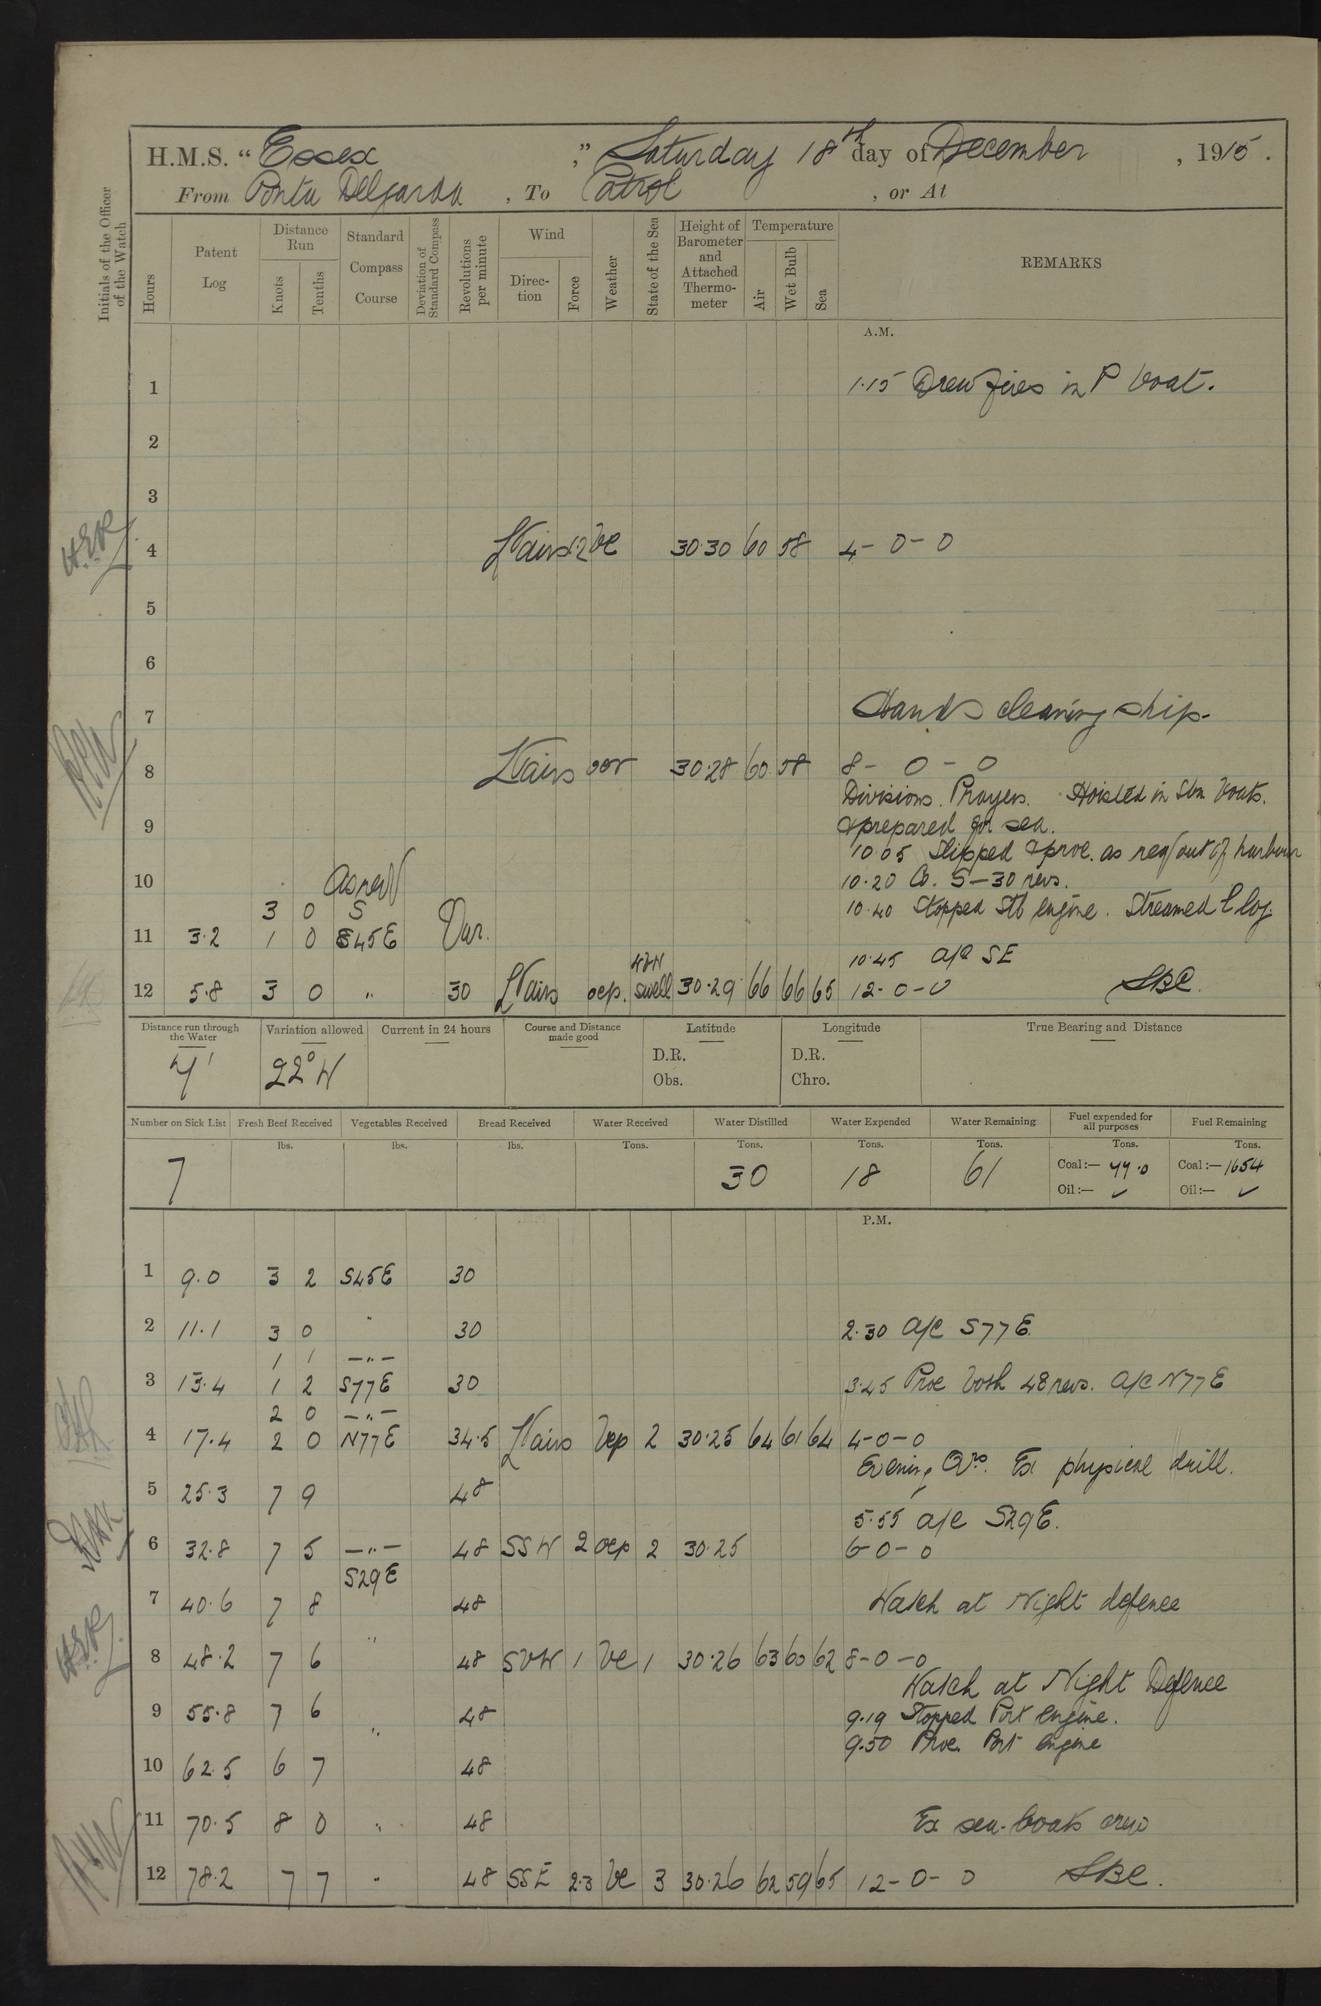 H.M.S. “ Essex ,” Saturday 18th day of December , 1915 .
From Ponta Delgarda , To Patrol , or At
Initials of the Officer of the Watch
Hours
Patent Log
Distance Run
Knots
Tenths
Standard Compass Course
Deviation of Standard Compass
Revolutions per minute
Wind
Direction
Force
Weather
State of the Sea
Height of Barometer and Attached Thermometer
Temperature
Air
Wet Bulb
Sea
REMARKS
A.M.
1 1.15 Drew fires in P boat.
2
3
4 Lt airs 1.2 bc 30.30 60 58 4-0-0
5
6
7 Hands cleaning ship.
8 Lt airs oor 30.28 60 58 8-0-0
Divisions. Prayers. Hoisted in Stm boats.
9 & prepared for sea.
10.05 Slipped & proc. as req/ out of harbour
10 As req 10.20 Co. S-30 revs.
3 0 S 10.40 Stopped Stb engine. Streamed P log.
11 3.2 1 0 S45E Var.
10.45 A/C SE
12 5.8 3 0 " 30 Lt airs ocp. NW swell 30.29 66 66 65 12-0-0 SBC.
Distance run through the Water
Variation allowed
Current in 24 hours
Course and Distance made good
Latitude
Longitude
True Bearing and Distance
7' 22° W D.R. D.R.
Obs. Chro.
Number on Sick List
Fresh Beef Received
Vegetables Received
Bread Received
Water Received
Water Distilled
Water Expended
Water Remaining
Fuel expended for all purposes
Fuel Remaining
lbs. lbs. lbs. Tons. Tons. Tons. Tons. Tons. Tons.
7 30 18 61 Coal:— 77.0 Coal:— 1654
Oil:— ✓ Oil:— ✓
P.M.
1 9.0 3 2 S45E 30
2 11.1 3 0 " 30 2.30 A/C S77E.
1 1 —"—
3 13.4 1 2 S77E 30 3.45 Proc both 48 revs. A/C N77E
2 0 —"—
4 17.4 2 0 N77E 34.5 Lt airs bcp 2 30.25 64 61 64 4-0-0
Evening Qrs. Ex physical drill.
5 25.3 7 9 48
5.55 A/C S29E.
6 32.8 7 5 —"— 48 SSW 2 ocp 2 30.25 6-0-0
S29E
7 40.6 7 8 48 Watch at Night defence
8 48.2 7 6 " 48 SWW 1 bc 1 30.26 63 60 62 8-0-0
Watch at Night Defence
9 55.8 7 6 " 48 9.19 Stopped Port engine.
9.50 Proc. Port engine
10 62.5 6 7 48
11 70.5 8 0 " 48 Ex sea-boats crew
12 78.2 7 7 " 48 SSE 2.3 bc 3 30.26 62 59 65 12-0-0 SBC.